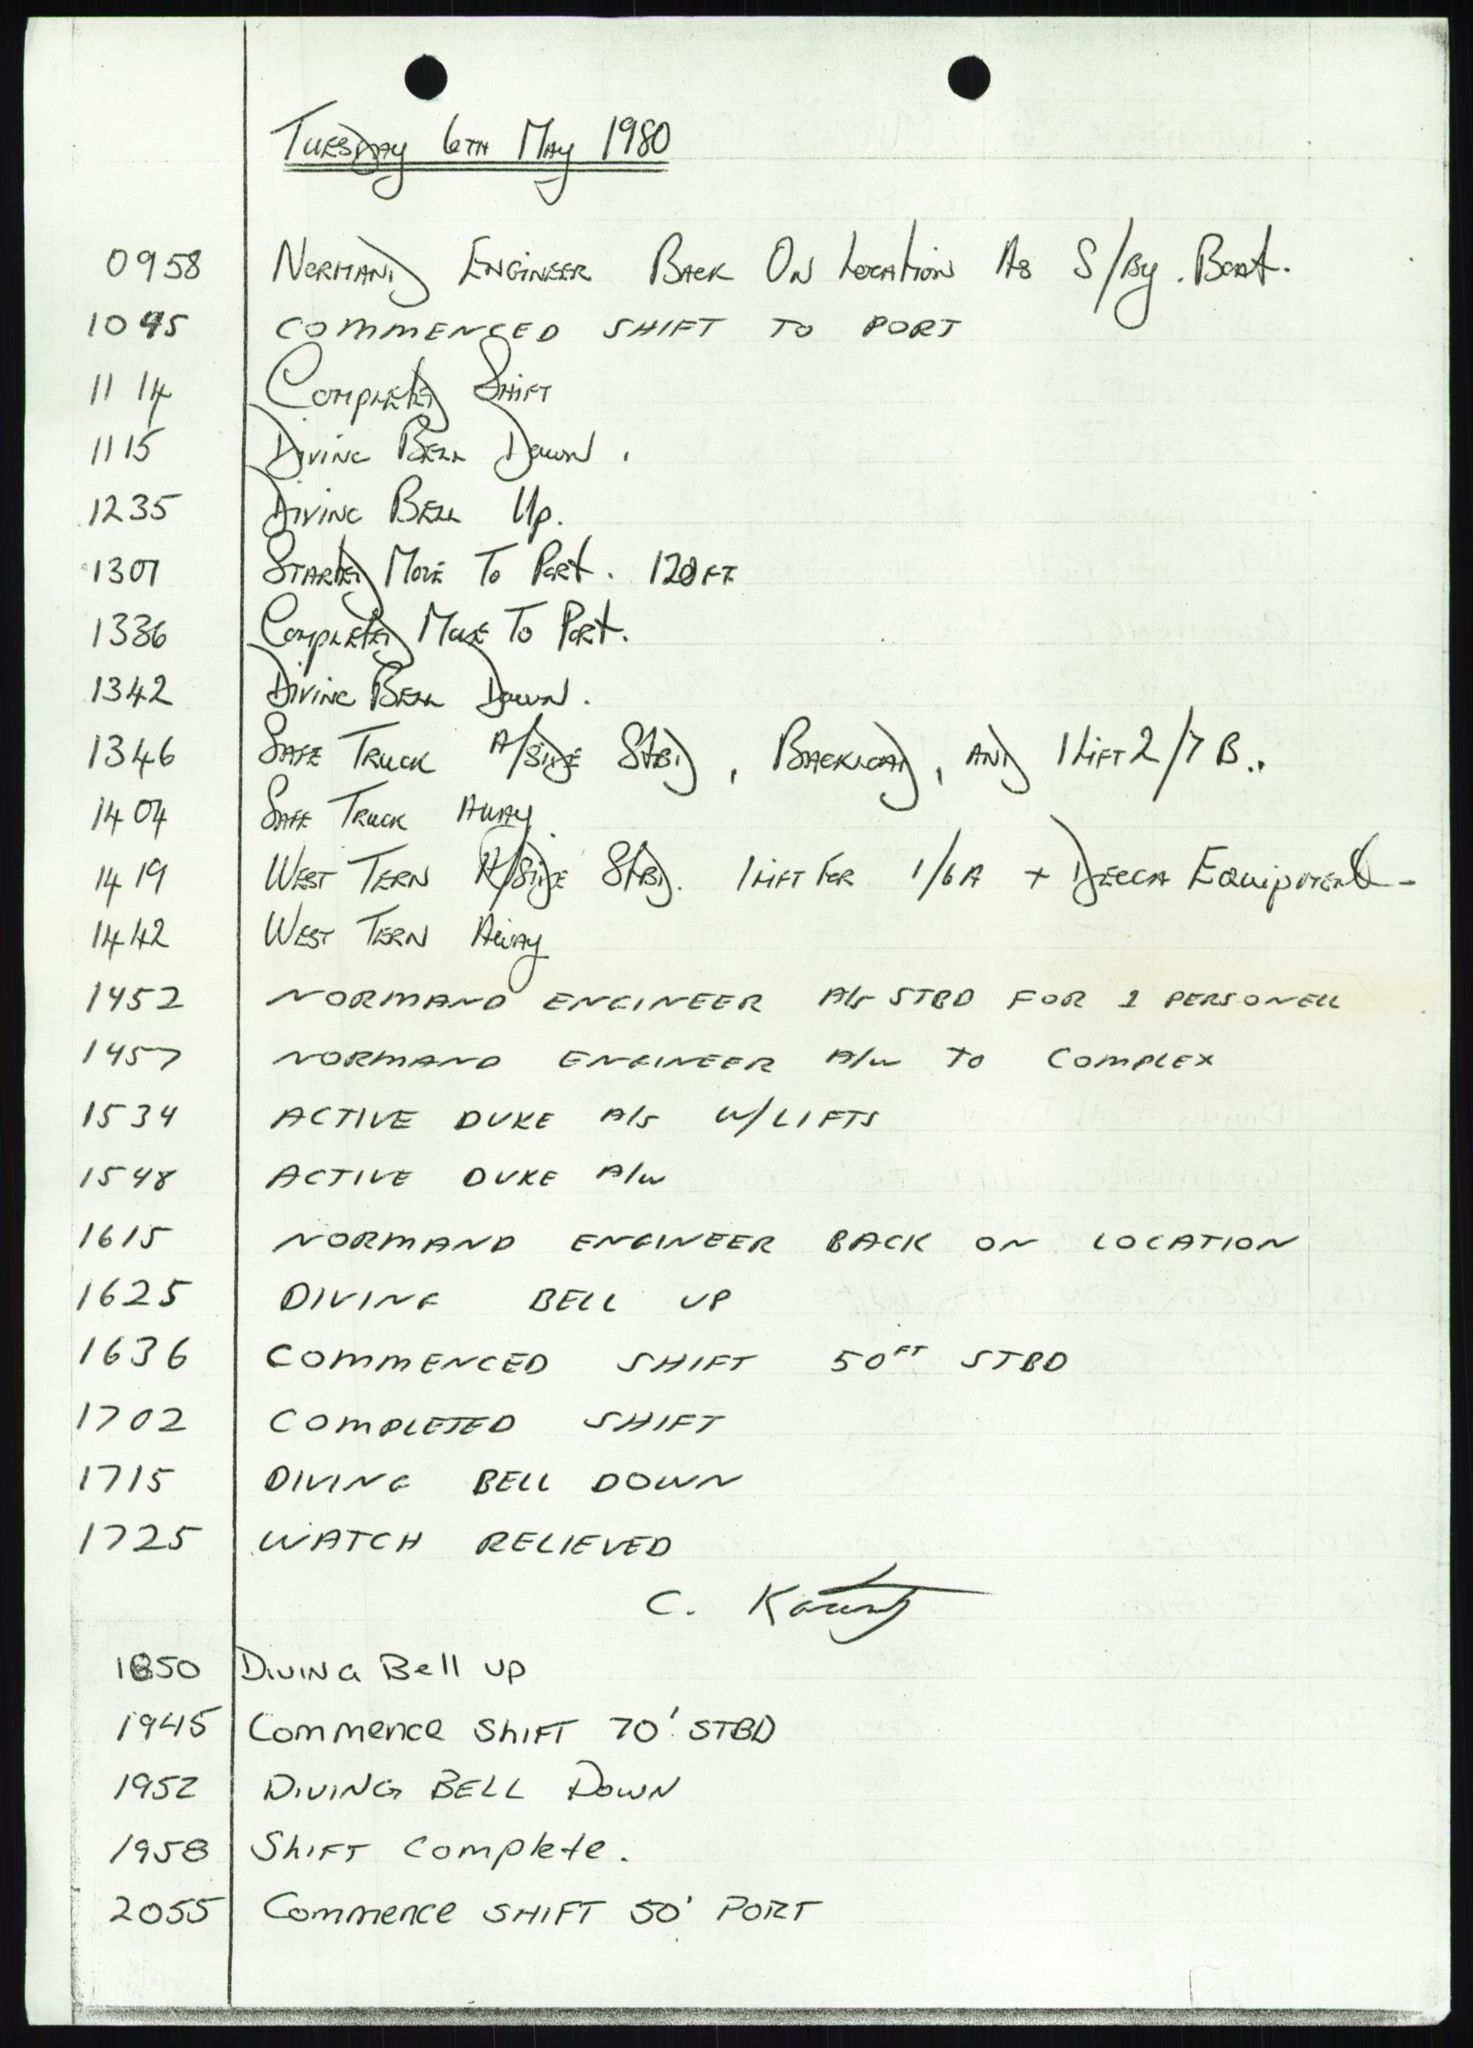 Tuesday 6th May 1980
0958 Normand Engineer Back On Location As S/By. Boat.
1045 COMMENCED SHIFT TO PORT
1114 Completed Shift
1115 Diving Bell Down.
1235 Diving Bell Up.
1307 Started Move To Port. 120FT
1336 Completed Move To Port.
1342 Diving Bell Down.
1346 Safe Truck A/Side Stbd, Backload, and 1 Lift 2/7 B..
1404 Safe Truck Away
1419 West Tern A/Side Stbd. 1 Lift For 1/6A + Decca Equipment -
1442 West Tern Away
1452 NORMAND ENGINEER A/S STBD FOR 1 PERSONELL
1457 NORMAND ENGINEER A/W TO COMPLEX
1534 ACTIVE DUKE A/S W/LIFTS
1548 ACTIVE DUKE A/W
1615 NORMAND ENGINEER BACK ON LOCATION
1625 DIVING BELL UP
1636 COMMENCED SHIFT 50FT STBD
1702 COMPLETED SHIFT
1715 DIVING BELL DOWN
1725 WATCH RELIEVED
C.
1850 Diving Bell up
1945 Commence SHIFT 70' STBD
1952 DIVING BELL DOWN
1958 Shift Complete.
2055 Commence SHIFT 50' PORT